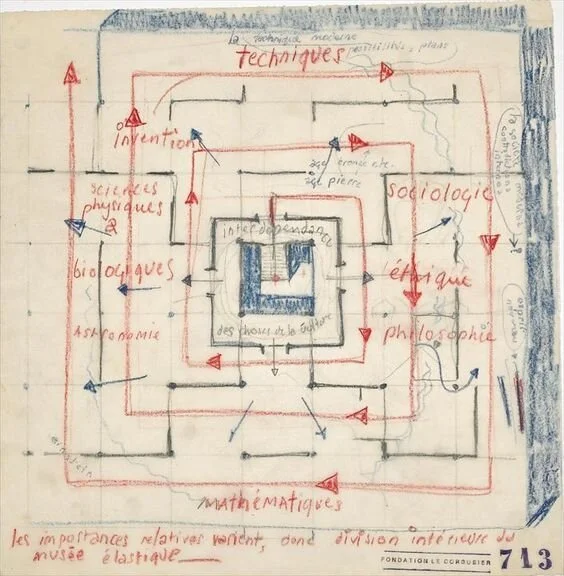 la technique moderne
techniques
possibilité, plans
invention
age bronze etc.
age pierre
sciences
physiques
sociologie
interdependance
biologiques
éthique
des choses de la culture
Astronomie
philosophie
einstein
MATHÉMATIQUES
les importances relatives varient, donc division intérieure du
musée élastique
FONDATION LE CORBUSIER 713